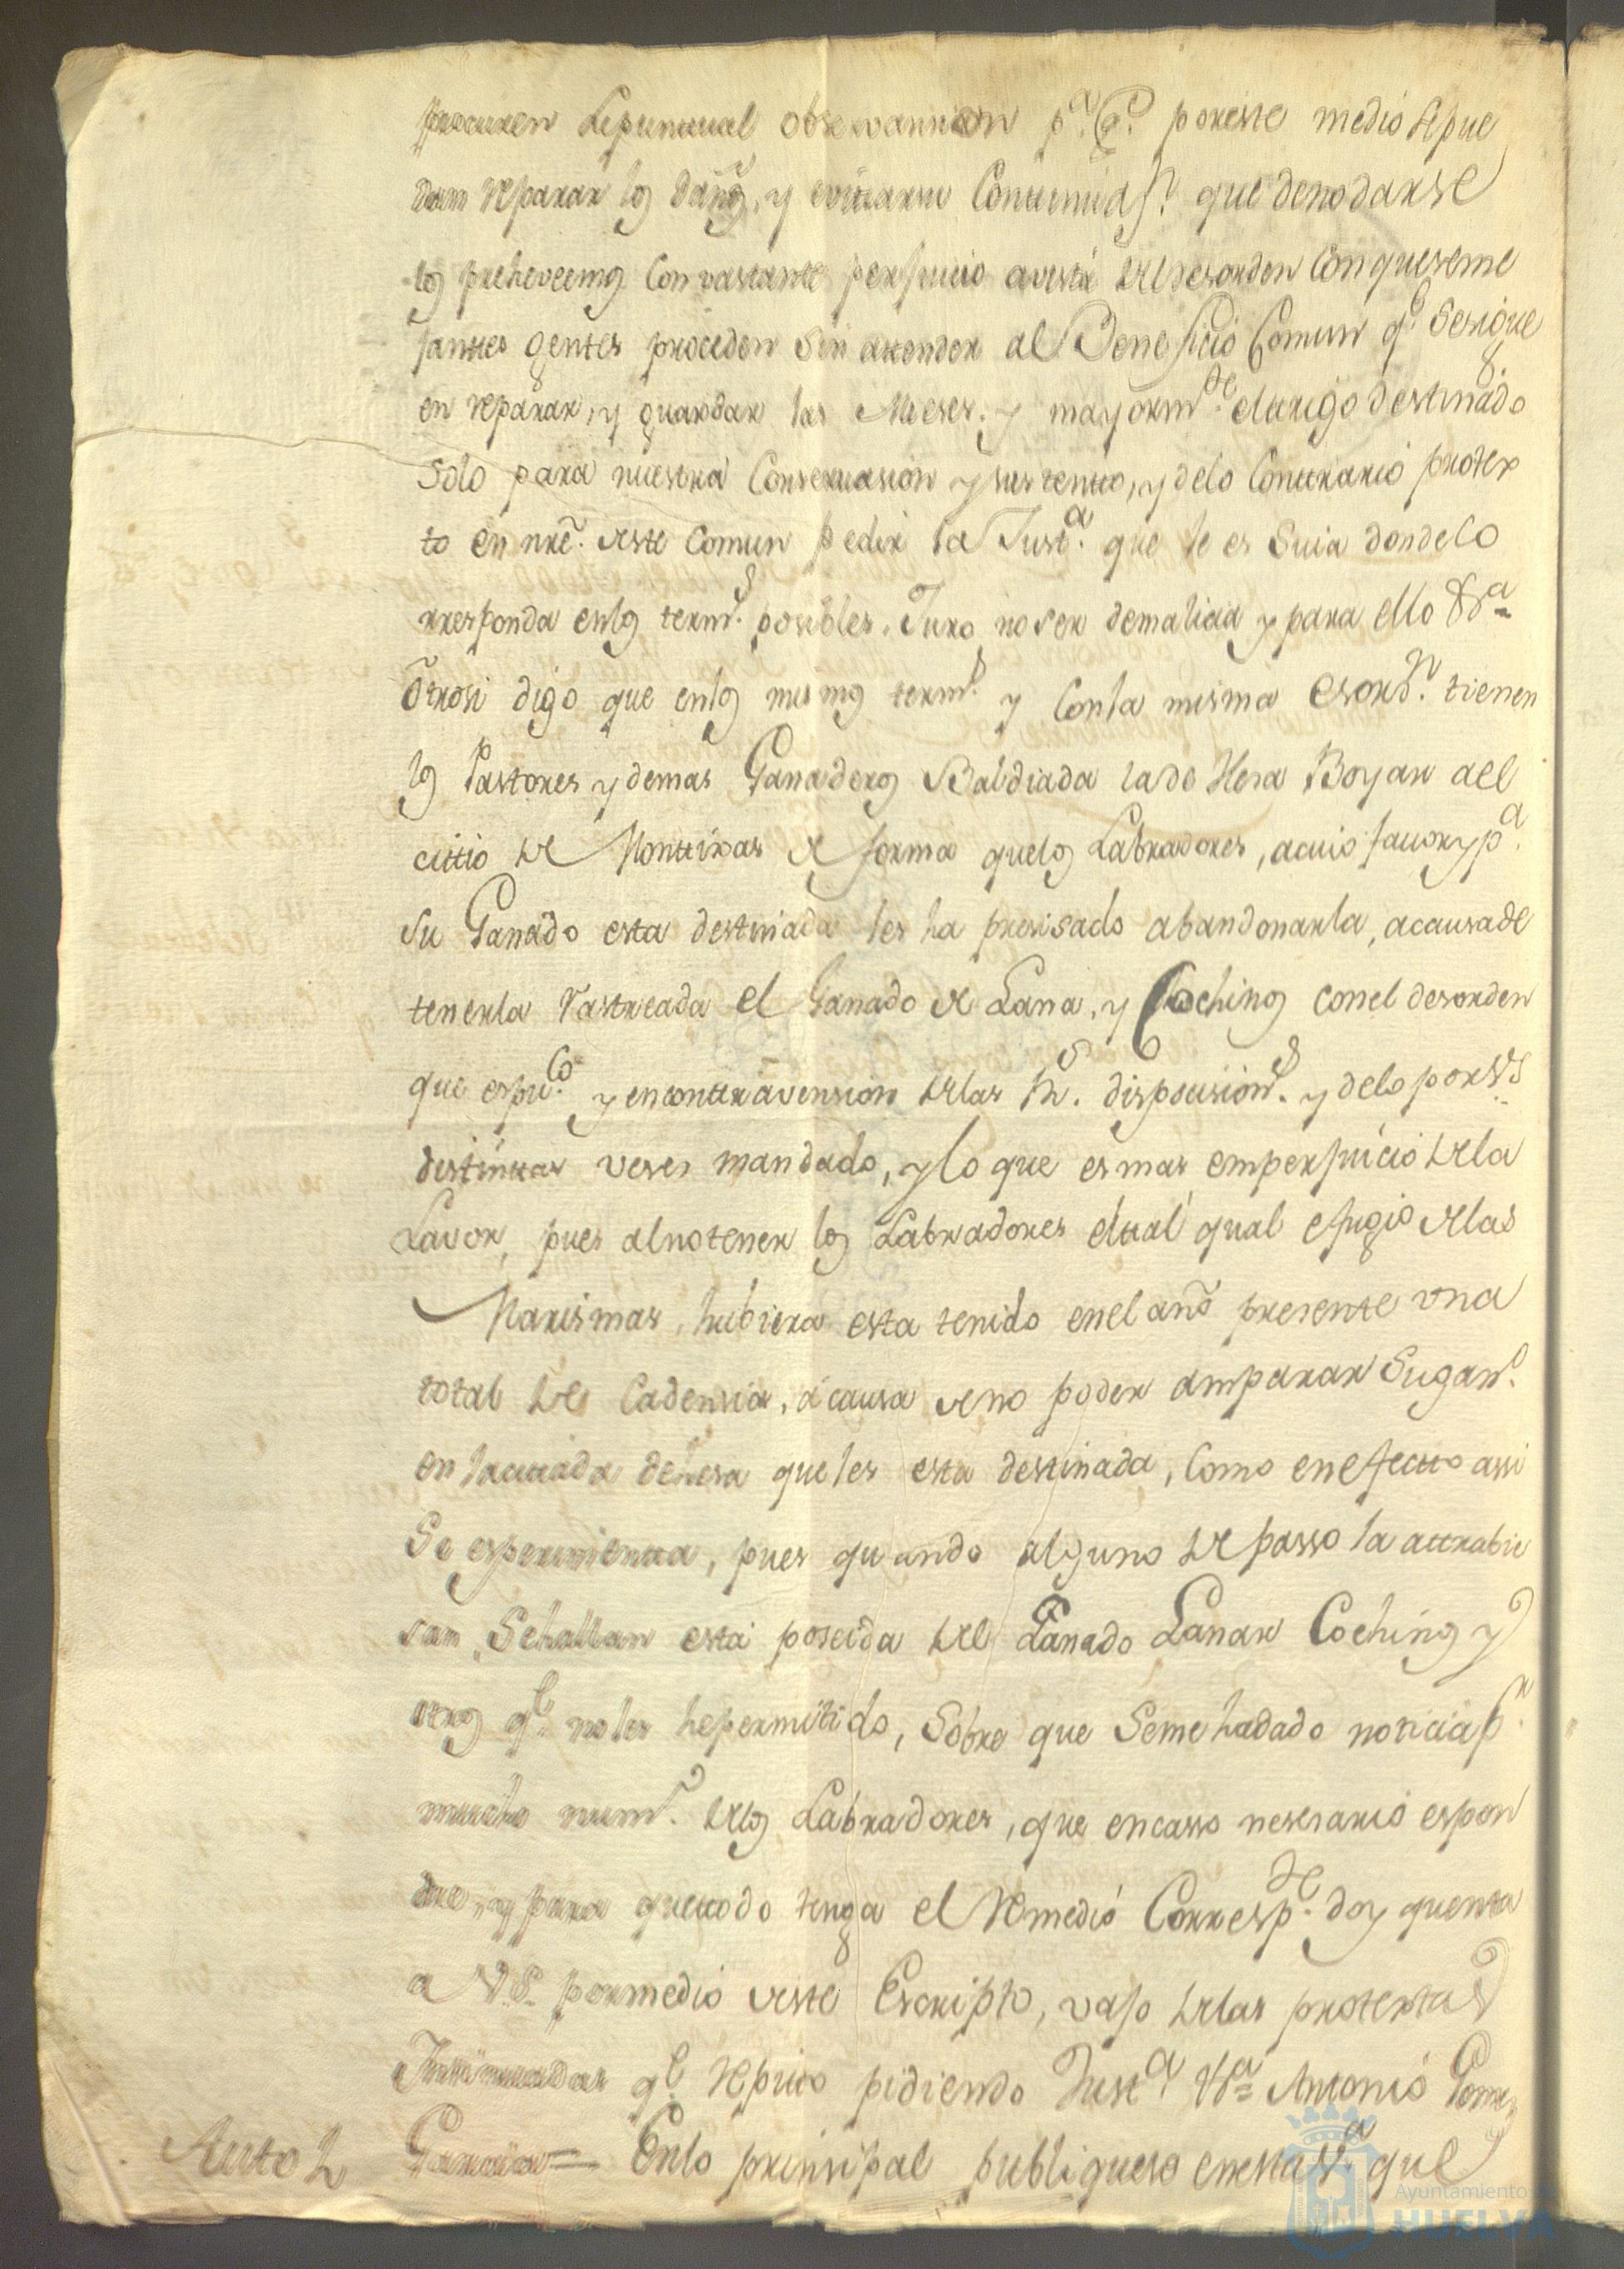 procuren de puntual observancion pª qe por este medio se pue
dan reparar los daños, y evittar su Conttinuasn que de no darse
los prehoveemos con vastante perjuicio a vista del desorden con que seme
janttes gentes proceden sin attender al Beneficio Comun qe se sigue
en reparar, y guardar las Mieses. y mayormte el trigo destinado
solo para nuestra Conservasion y sustentto, y de lo Conttrario protex
to en nre. de este Comun pedir la Justª que le es suia donde co
rresponda en los terms posibles. Juro no ser de malicia y para ello Vª
Otrosi digo que en los mismos terms y con la misma esordn tienen
los Pastores y demas Ganaderos Baldiada la de Hesa Boyar del
cittio de Monttixas de forma que los Labradores, a cuio favor y pª
su Ganado esta destinada les ha presisado abandonarla, a causa de
tenerla Vastreada el Ganado de Lana, y Cochinos con el desorden
que es puco y en conttravension de las Rs disposisions y de lo por VS
distinttas veses mandado, y lo que es mas en perjuicio de la
Lavor, pues al no tener los Labradores el tal qual efugio de las
Marismas, hubiera esta tenido en el año presente una
total de Cadensia, a causa de no poder amparar su gando
en la cittada dehesa que les esta destinada, como en efectto assi
se esperimentta, pues quando alguno de passo la attrabie
san, se hallan esta poseida del Ganado Lanar Cochinos y
otros qe no les he permitido, sobre que se me ha dado noticia pr
mucho numo de los Labradores, que en casso nesesario espon
dre, y para que ttodo tenga el Remedio Correspte doy quenta
a VS por medio de este Escripto, vajo de las protextas
Inttimadas qe repito pidiendo Justª Vª Antonio Gomez
Auto 2 Garcia = En lo prinsipal publiquese en esta Vª que
Ayuntamiento de
HUELVA